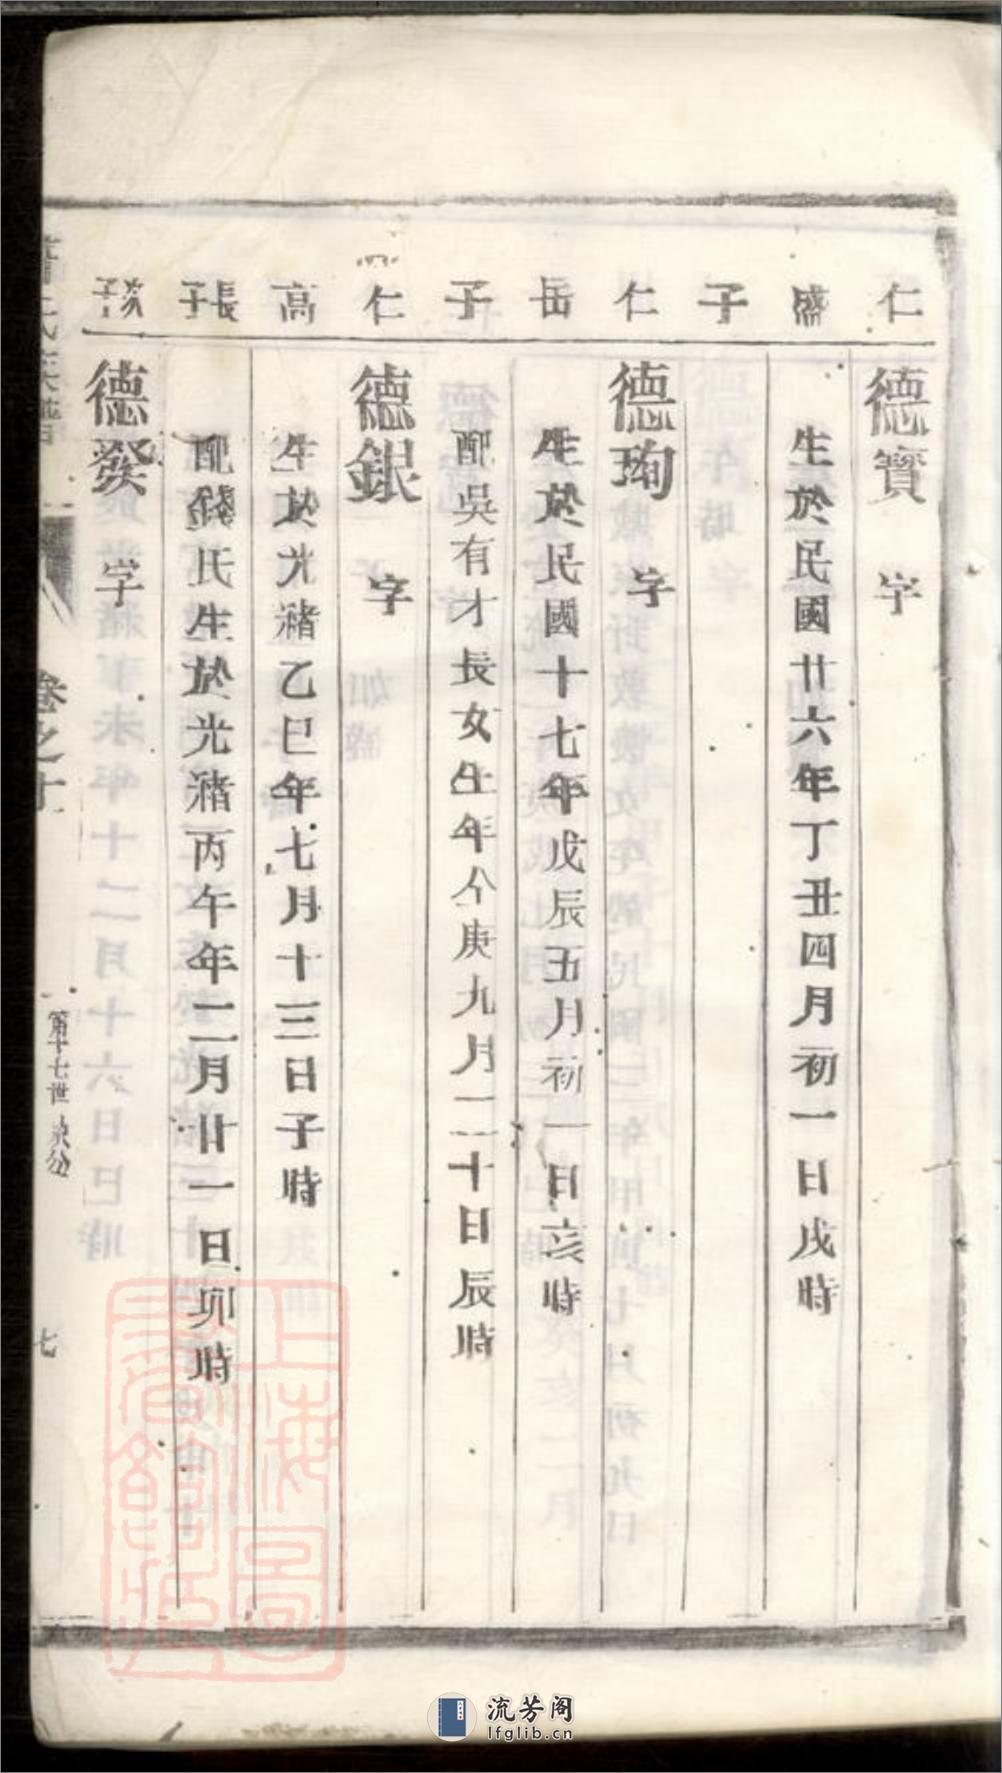 仁
德寳 字
盛
生於民國廿六年丁丑四月初一日戌時
子
仁
德珣 字
岳
生於民國十七年戊辰五月初一日亥時
子
配吳有才長女生年仐庚九月二十日辰時
仁
德銀 字
高
生於光緒乙巳年七月十三日子時
張子
配錢氏生於光緒丙午年二月廿一日卯時
德發 字
氏族譜
卷之十
第十七世
七
上海圖書館藏
流芳阁
lfglib.cn